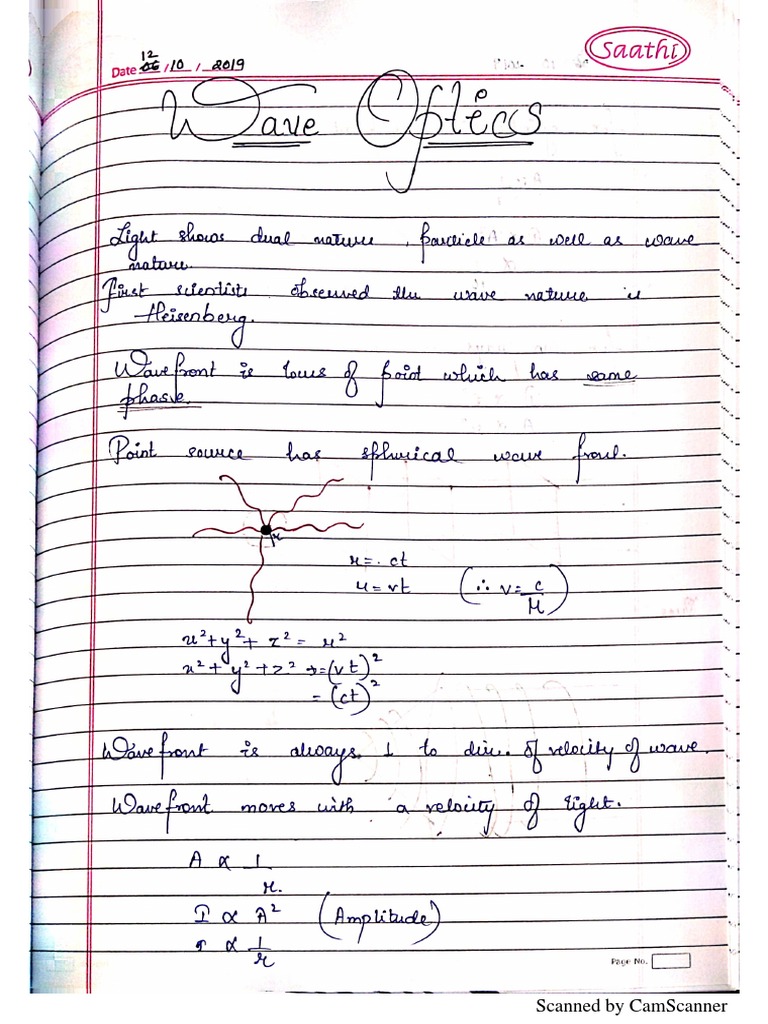 Saathi
12
Date 06 / 10 / 2019
Wave Optics
Light shows dual nature, particle as well as wave
nature.
First scientists observed the wave nature is
Heisenberg.
Wavefront is locus of point which has same
phase.
Point source has spherical wave front.
r
r = ct
r = vt (∴ v = c/μ)
x² + y² + z² = r²
x² + y² + z² = (vt)²
= (ct)²
Wavefront is always ⊥ to dirn. of velocity of wave.
Wavefront moves with a velocity of light.
A ∝ 1/r.
I ∝ A² (Amplitude)
∝ 1/r
Page No.
Scanned by CamScanner